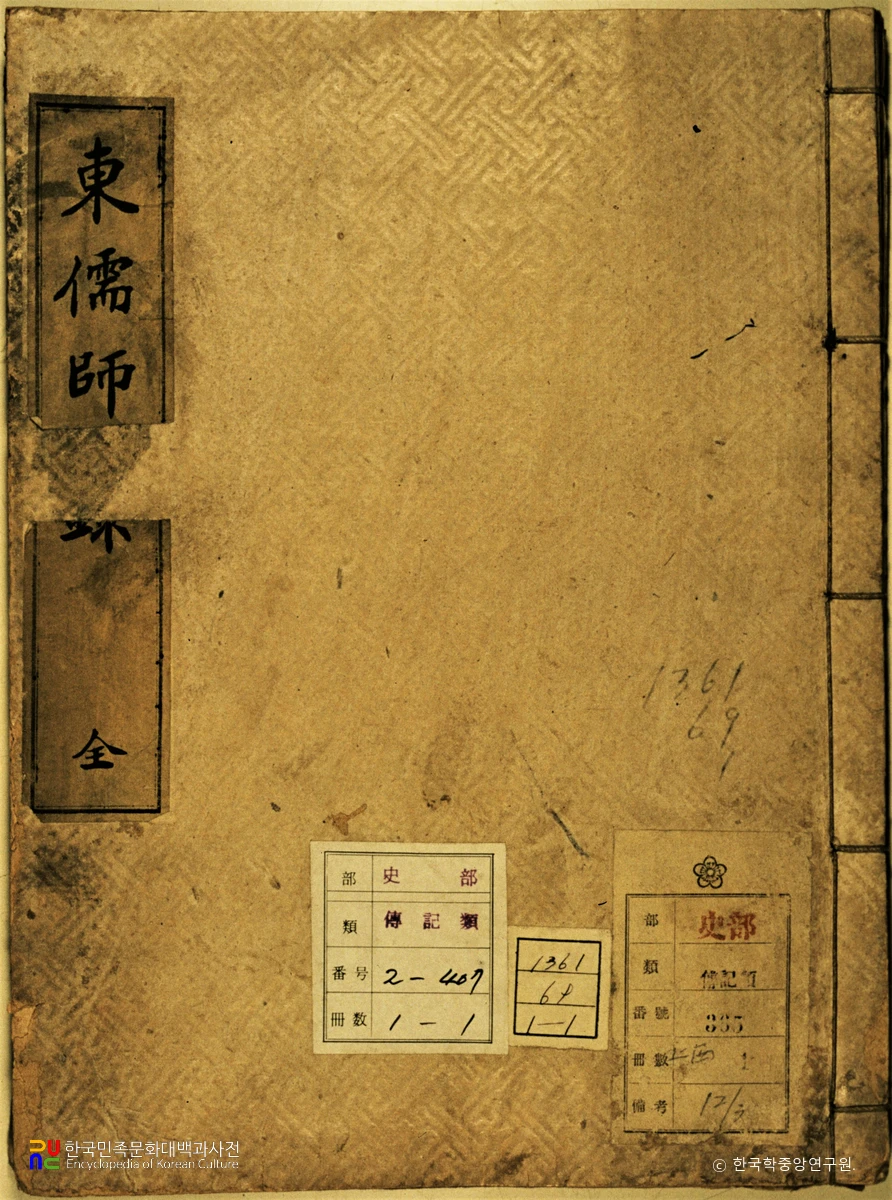 東儒師
全
1361
69
1
部 史部
類 傳記類
番号 2-407
冊数 1-1
1361
1-1
部 史部
類 傳記類
番號 335
冊數 1
備考
한국민족문화대백과사전
Encyclopedia of Korean Culture
© 한국학중앙연구원